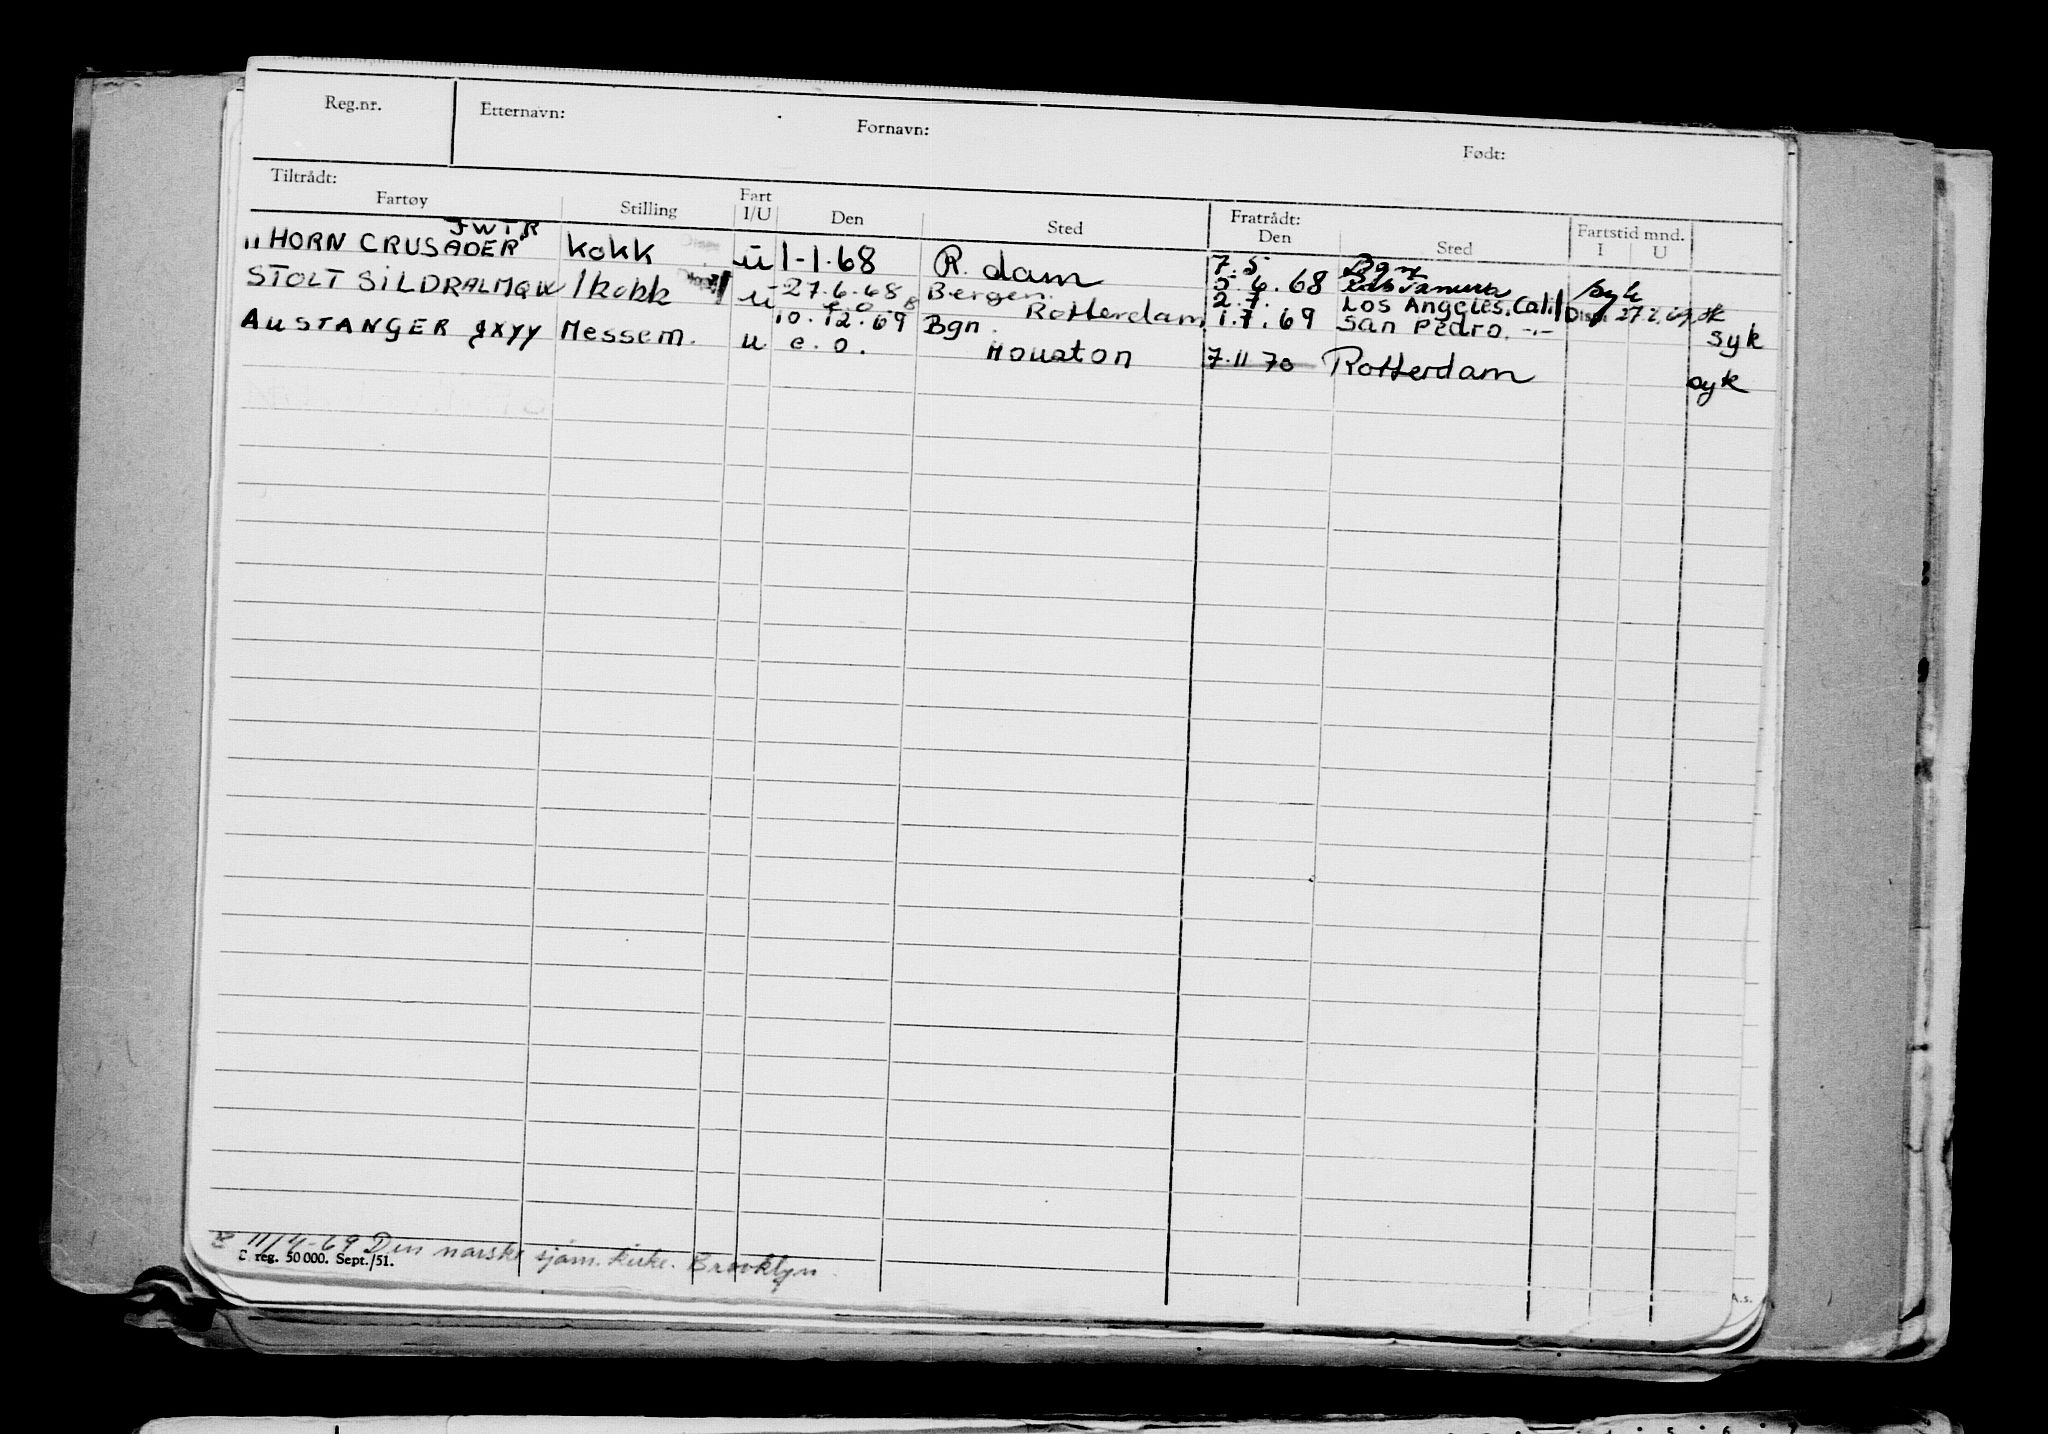 Reg.nr. Etternavn: Fornavn: Født:
Tiltrådt: Fratrådt: Fartstid mnd.
Fartøy Stilling Fart I/U Den Sted Den Sted I U
JWTR
" HORN CRUSADER kokk u 1-1-68 R.dam 7.5 Dam
5.6.68 syk
STOLT SILDRA LMQW 1kokk u 27.6.68 Bergen 2.7. Los Angeles. Cali
e.o. Rotterdam 1.7.69 San Pedro. -"- syk
AUSTANGER JXYY Messem. u 10.12.69 Bgn.
e.o. Houston 7.11 70 Rotterdam syk
11/4-69 Den norske sjøm. kirke. Brooklyn.
reg. 50 000. Sept./51.
A.s.